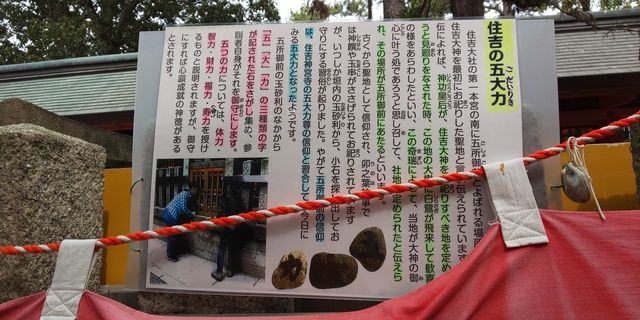 住吉の五大力
ごだいりき
住吉大社の第一本宮の南に五所御前とよばれる場所
住吉大神を最初にお祀りした聖地と言い伝えられています
伝によれば、神功皇后が、住吉大神をお祀りすべき地を定め
うと見廻りをなされた時、この地の大杉に白鷺が飛来して歓喜
の様をあらわしたという、この奇瑞によって、当地が大神の御
心に叶う処であろうと思し召して、社地と定められたと伝えら
れ、その場所が五所御前にあたるといいます。
古くから聖地として信仰され、御
神饌や玉串がささげられてお祀りされています
が、いつしか垣内の玉砂利から、小石を探し出してお
守りにする習俗が起りました。やがて五所御前の信仰
は、住吉神宮寺の五大力尊の信仰と習合して今日に
みる五大力となったようです。
五所御前の玉砂利のなかから
「五」「大」「力」の三種類の字
が記された石をさがし集め、参
詣者自身がそれを御守にします。
五つの力については、体力・
智力・財力・福力・寿力を授け
るものと説明されますが、御守
にすれば心願成就の神徳がある
とされます。